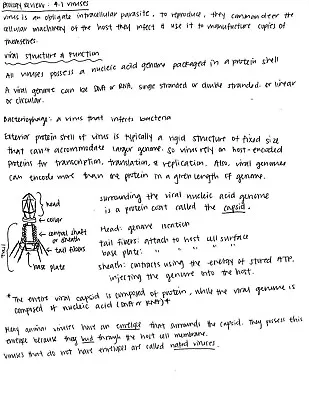 Biology Review: 4.1 viruses
virus is an obligate intracellular parasite, to reproduce, they commandeer the
cellular machinery of the host they infect & use it to manufacture copies of
themselves.
Viral structure & Function
All viruses possess a nucleic acid genome packaged in a protein shell
A viral genome can be DNA or RNA, single stranded or double stranded, or linear
or circular.
Bacteriophage: A virus that infects bacteria
Exterior protein shell of virus is typically a rigid structure of fixed size
that can't accommodate larger genome. So virus rely on host-encoded
proteins for transcription, translation, & replication. Also, viral genomes
can encode more than one protein in a given length of genome.
head
collar
central shaft
or sheath
tail fibers
base plate
tail
surrounding the viral nucleic acid genome
is a protein coat called the capsid.
Head: genome location
tail fibers: attach to host cell surface
base plate: " " " " "
sheath: contracts using the energy of stored ATP,
injecting the genome into the host.
*The entire viral capsid is composed of protein, while the viral genome is
composed of nucleic acid (DNA or RNA)*
Many animal viruses have an envelope that surrounds the capsid. They possess this
envelope because they bud through the host cell membrane.
viruses that do not have envelopes are called naked viruses.